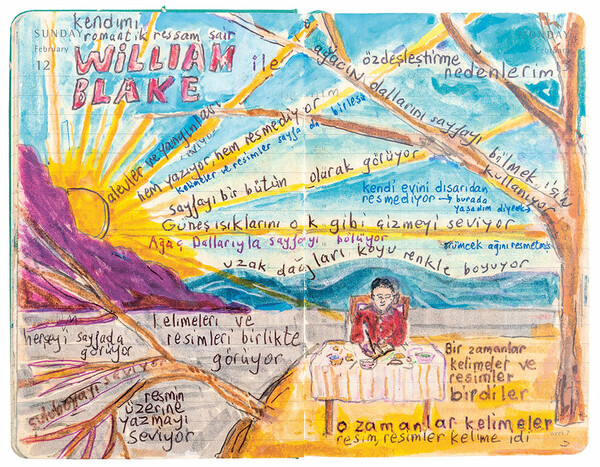 SUNDAY
February
12
SUNDAY
kendimi
romantik ressam şair
WILLIAM
BLAKE
ile
özdeşleştirme
nedenlerim
ağacın dallarını sayfayı bölmek için
kullanıyor
alevler ve yangınları
seviyor
hem yazıyor, hem resmediyor
kelimeler ve resimler sayfada birleşi
sayfayı bir bütün olarak görüyor
kendi evini dışarıdan
resmediyor → burada
yaşadım diyerek
Güneş ışıklarını ok gibi çizmeyi seviyor
Ağaç Dallarıyla sayfayı bölüyor
örümcek ağını resmetmiş
uzak dağları koyu renkle boyuyor
herşeyi sayfada
görüyor
kelimeleri ve
resimleri birlikte
görüyor
resmin
üzerine
yazmayı
seviyor
Bir zamanlar
kelimeler ve
resimler
birdiler
o zamanlar kelimeler
resim, resimler kelime idi